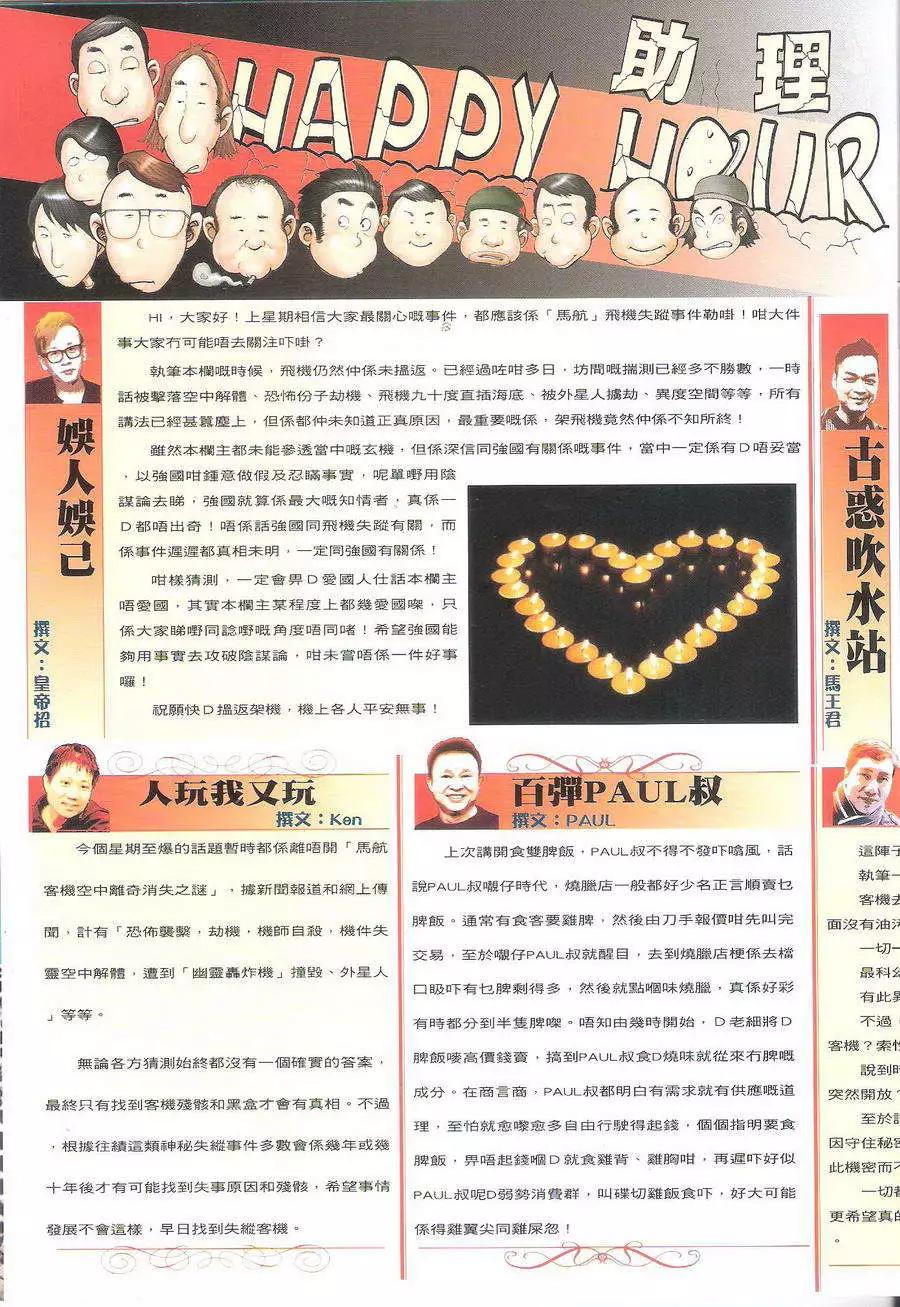 助理
HAPPY HOUR
娛人娛己
撰文：皇帝招
HI，大家好！上星期相信大家最關心嘅事件，都應該係「馬航」飛機失蹤事件勒啩！咁大件
事大家冇可能唔去關注吓啩？
執筆本欄嘅時候，飛機仍然仲係未搵返。已經過咗咁多日，坊間嘅揣測已經多不勝數，一時
話被擊落空中解體、恐怖份子劫機、飛機九十度直插海底、被外星人擄劫、異度空間等等，所有
講法已經甚囂塵上，但係都仲未知道正真原因，最重要嘅係，架飛機竟然仲係不知所終！
雖然本欄主都未能參透當中嘅玄機，但係深信同強國有關係嘅事件，當中一定係有D唔妥當
，以強國咁鍾意做假及忍瞞事實，呢單嘢用陰
謀論去睇，強國就算係最大嘅知情者，真係一
D都唔出奇！唔係話強國同飛機失蹤有關，而
係事件遲遲都真相未明，一定同強國有關係！
咁樣猜測，一定會畀D愛國人仕話本欄主
唔愛國，其實本欄主某程度上都幾愛國㗎，只
係大家睇嘢同諗嘢嘅角度唔同啫！希望強國能
夠用事實去攻破陰謀論，咁未嘗唔係一件好事
囉！
祝願快D搵返架機，機上各人平安無事！
古惑吹水站
撰文：馬王君
人玩我又玩
撰文：Ken
今個星期至爆的話題暫時都係離唔開「馬航
客機空中離奇消失之謎」，據新聞報道和網上傳
聞，計有「恐佈襲擊，劫機，機師自殺，機件失
靈空中解體，遭到「幽靈轟炸機」撞毀、外星人
」等等。
無論各方猜測始終都沒有一個確實的答案，
最終只有找到客機殘骸和黑盒才會有真相。不過
，根據往績這類神秘失縱事件多數會係幾年或幾
十年後才有可能找到失事原因和殘骸，希望事情
發展不會這樣，早日找到失縱客機。
百彈PAUL叔
撰文：PAUL
上次講開食雙脾飯，PAUL叔不得不發吓噏風，話
說PAUL叔𡃁仔時代，燒臘店一般都好少名正言順賣乜
脾飯。通常有食客要雞脾，然後由刀手報價咁先叫完
交易，至於𡃁仔PAUL叔就醒目，去到燒臘店梗係去檔
口昅吓有乜脾剩得多，然後就點嗰味燒臘，真係好彩
有時都分到半隻脾㗎。唔知由幾時開始，D老細將D
脾飯嘜高價錢賣，搞到PAUL叔食D燒味就從來冇脾嘅
成分。在商言商，PAUL叔都明白有需求就有供應嘅道
理，至怕就愈嚟愈多自由行駛得起錢，個個指明要食
脾飯，畀唔起錢嗰D就食雞背、雞胸咁，再遲吓好似
PAUL叔呢D弱勢消費群，叫碟切雞飯食吓，好大可能
係得雞翼尖同雞屎忽！
這陣子
執筆一
客機去
面沒有油污
一切一
最科幻
有此異
不過，
客機？索性
說到時
突然開放？
至於
因守住秘密
此機密而不
一切都
更希望真的
。